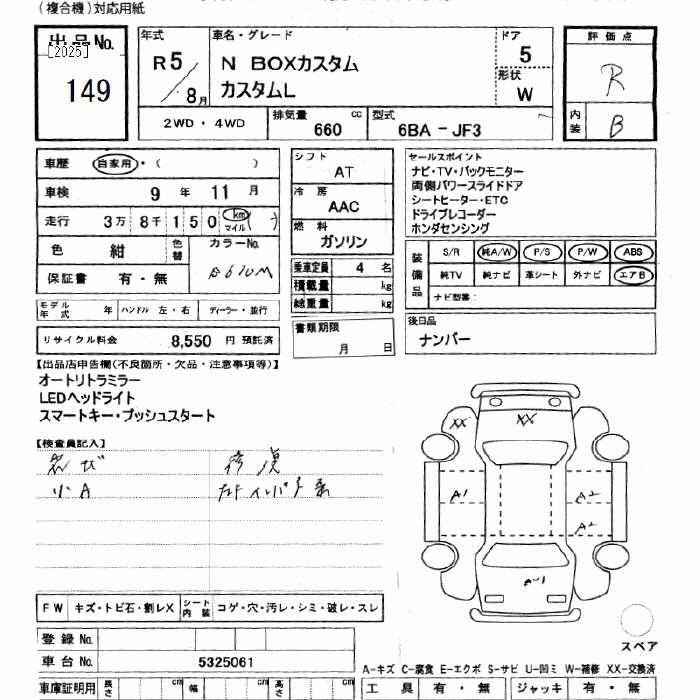 (複合機)対応用紙
出品No.
[2025]
149
年式
R5/8月
車名・グレード
N BOXカスタム
カスタムL
ドア
5
形状
W
評価点
R
内装
B
2WD・4WD
排気量 cc
660
型式
6BA - JF3
車歴 自家用・( )
車検 9年 11月
走行 3万 8千 1 5 0 km マイル ( )
色 紺 色替 カラーNo.
B610M
保証書 有・無
モデル年式 年 ハンドル 左・右 ディーラー・並行
リサイクル料金 8,550 円 預託済
シフト
AT
冷房
AAC
燃料
ガソリン
乗車定員 4 名
積載量 kg
総重量 kg
書類期限
月 日
セールスポイント
ナビ・TV・バックモニター
両側パワースライドドア
シートヒーター・ETC
ドライブレコーダー
ホンダセンシング
装備品
S/R 純A/W P/S P/W ABS
純TV 純ナビ 革シート 外ナビ エアB
ナビ型番:
後日品
ナンバー
【出品店申告欄(不良箇所・欠品・注意事項等)】
オートリトラミラー
LEDヘッドライト
スマートキー・プッシュスタート
【検査員記入】
小A
修復
XX XX
A1 A2
A2
A1
FW キズ・トビ石・割レX シート内装 コゲ・穴・汚レ・シミ・破レ・スレ
登録No.
車台No. 5325061
スペア
A-キズ C-腐食 E-エクボ S-サビ U-凹ミ W-補修 XX-交換済
車庫証明用 長さ cm 幅 cm 高さ cm
工具 有・無 ジャッキ 有・無